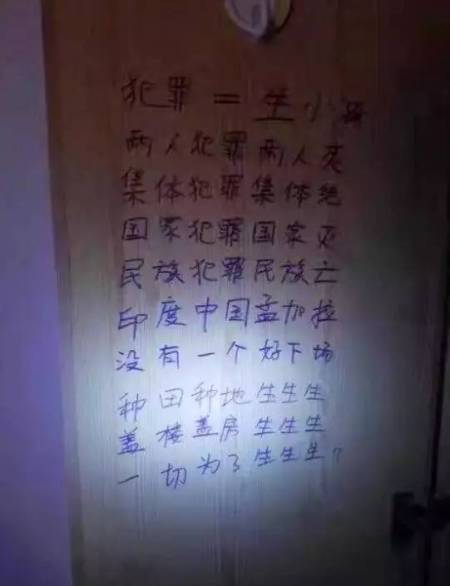 犯罪=生小孩
两人犯罪两人灭
集体犯罪集体绝
国家犯罪国家灭
民族犯罪民族亡
印度中国孟加拉
没有一个好下场
种田种地生生生
盖楼盖房生生生
一切为了生生生?